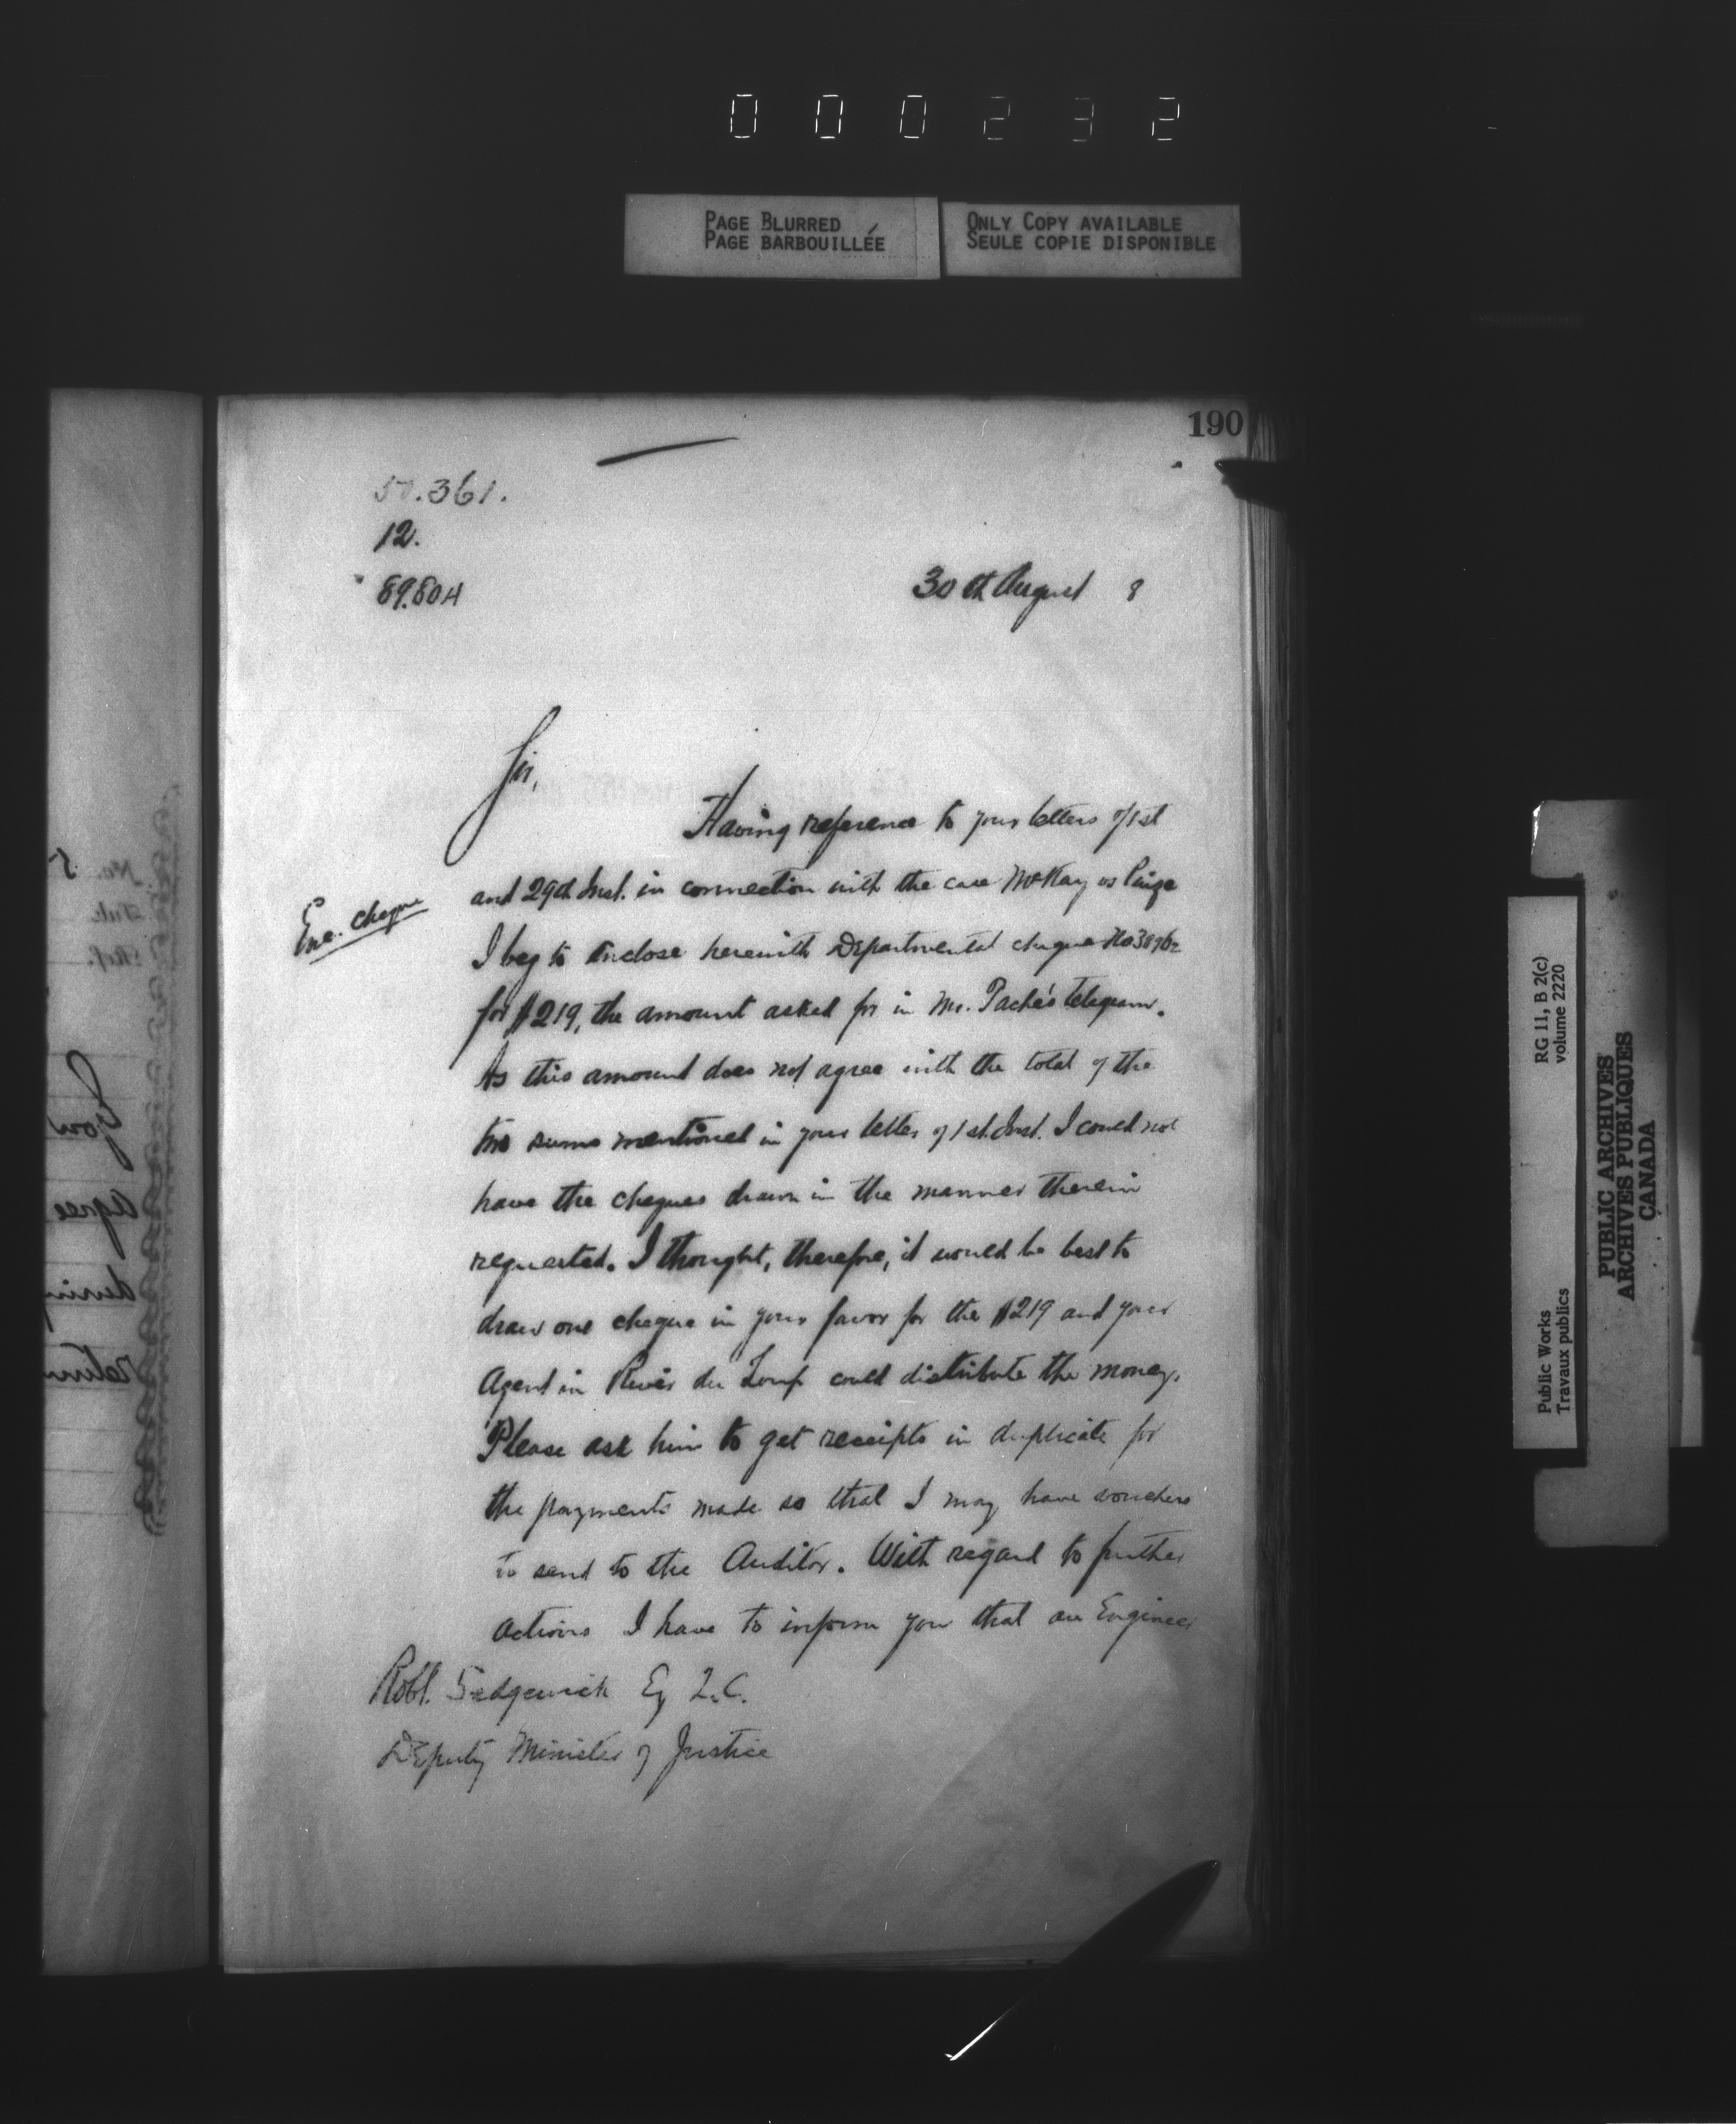 000232
PAGE BLURRED
PAGE BARBOUILLÉE
ONLY COPY AVAILABLE
SEULE COPIE DISPONIBLE
190
.361.
12.
89.804
30th August 8
Sir,
Having reference to your letters of 1st
and 29th Inst. in connection with the case McKay vs
Enc. cheque
I beg to enclose herewith Departmental cheque
for $219, the amount asked for in Mr. Taché's telegram.
As this amount does not agree with the total of the
two sums mentioned in your letter of 1st. Inst. I could not
have the cheques drawn in the manner therein
requested. I thought, therefore, it would be best to
draw one cheque in your favor for the $219 and your
Agent in River du Loup could distribute the money.
Please ask him to get receipts in duplicate for
the payments made so that I may have vouchers
to send to the Auditor. With regard to further
actions I have to inform you that an Engineer
Robt. Sedgewick Eq Q.C.
Deputy Minister of Justice
RG 11, B 2(c)
volume 2220
Public Works
Travaux publics
PUBLIC ARCHIVES
ARCHIVES PUBLIQUES
CANADA